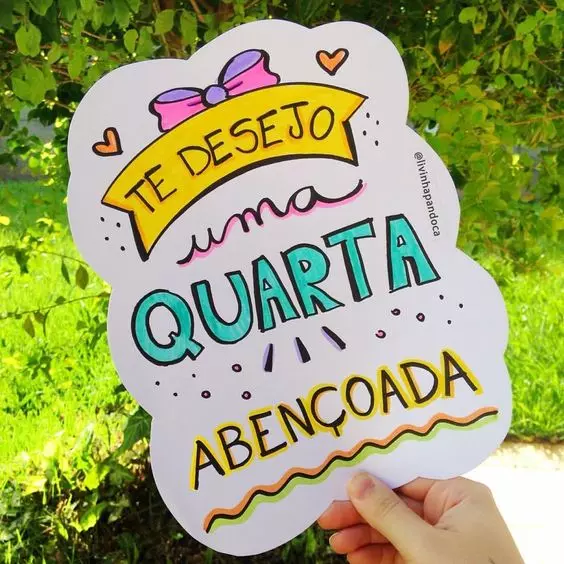 TE DESEJO
uma
QUARTA
ABENÇOADA
@livinhapandoca